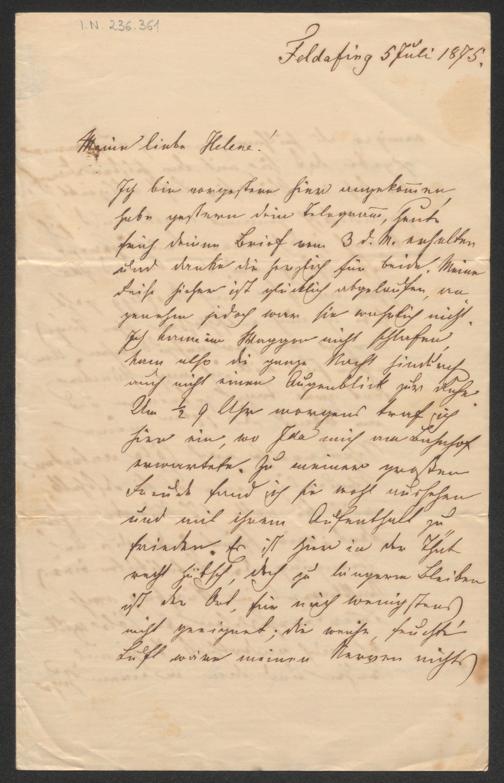 I.N. 236.361
Feldafing 5 Juli 1875.
Meine liebe Helene!
Ich bin vorgestern hier angekommen,
habe gestern dein Telegramm, heute
früh deinen Brief vom 3 d. M. erhalten
und danke dir herzlich für beide. Meine
Reise hieher ist glücklich abgelaufen, an
genehm jedoch war sie wahrlich nicht.
Ich kann im Waggon nicht schlafen,
kam also die ganze Nacht hindurch
auch nicht einen Augenblick zur Ruhe.
Um ½ 9 Uhr morgens traf ich
hier ein, wo Ida mich am Bahnhof
erwartete. Zu meiner großen
Freude fand ich sie wohl aussehen
und mit ihrem Aufenthalt zu
frieden. Es ist hier in der That
recht hübsch, doch zu längerm Bleiben
ist der Ort, für mich wenigstens,
nicht geeignet; die weiche, feuchte
Luft wäre meinen Nerven nichts